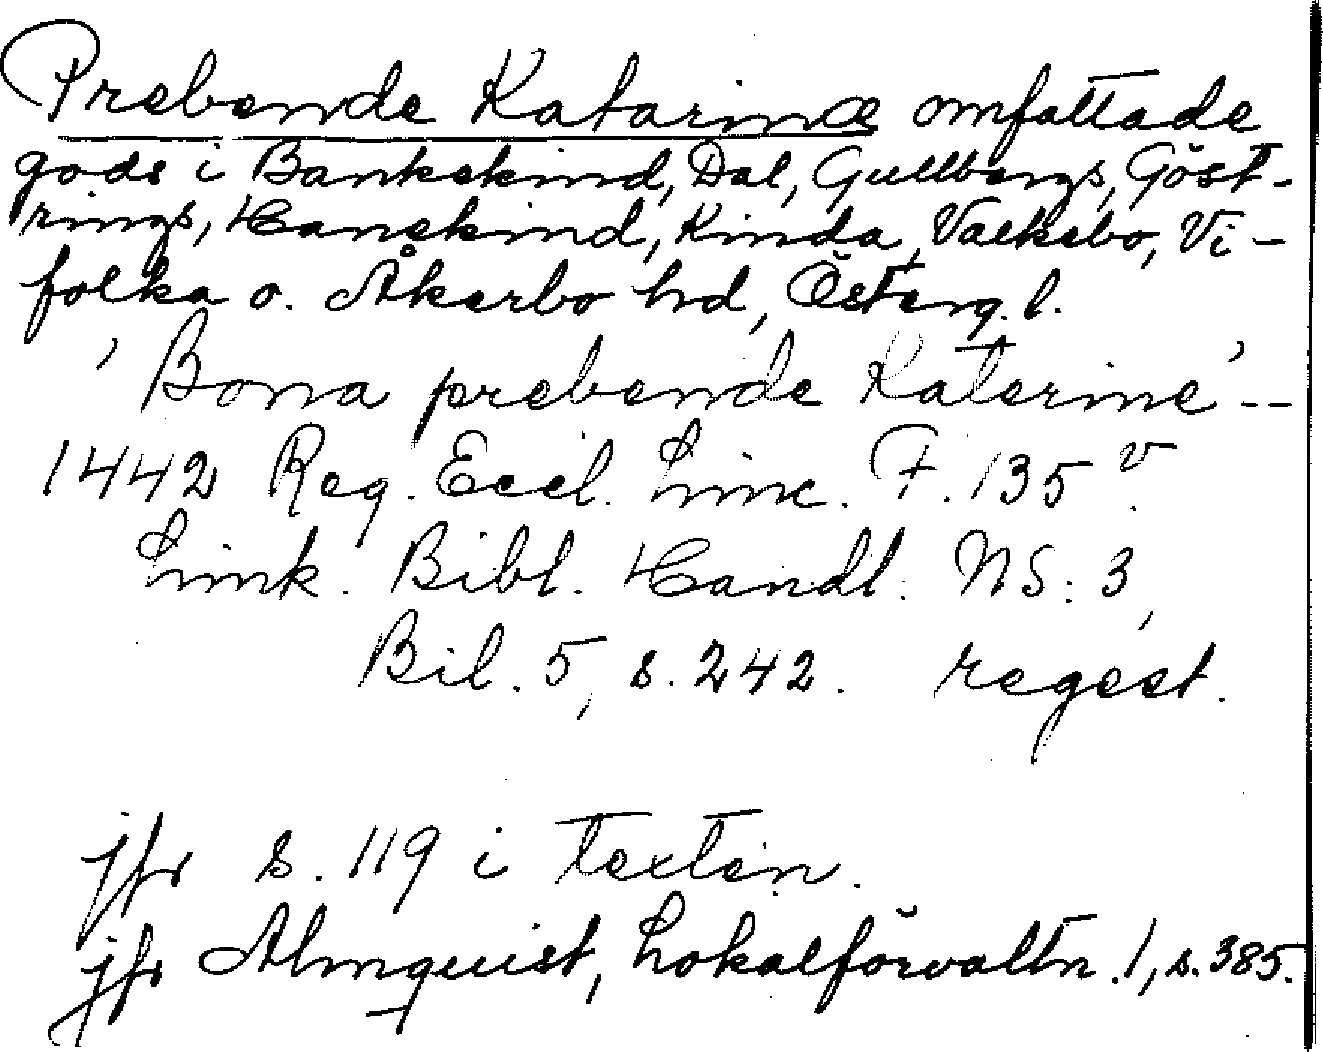 Prebende Katarinæ omfattade
gods i Bankekind, Dal, Gullbergs, Göst-
rings, Hanekind, Kinda, Valkebo, Vi-
folka o. Åkerbo hd, Österg. l.
'Bona prebende Katerine' --
1442 Reg. Eccl. Linc. F. 135 v.
Link. Bibl. Handl. NS: 3,
Bil. 5, s. 242. regest.
jfr s. 119 i texten.
jfr Almquist, Lokalförvaltn. 1, s. 385.